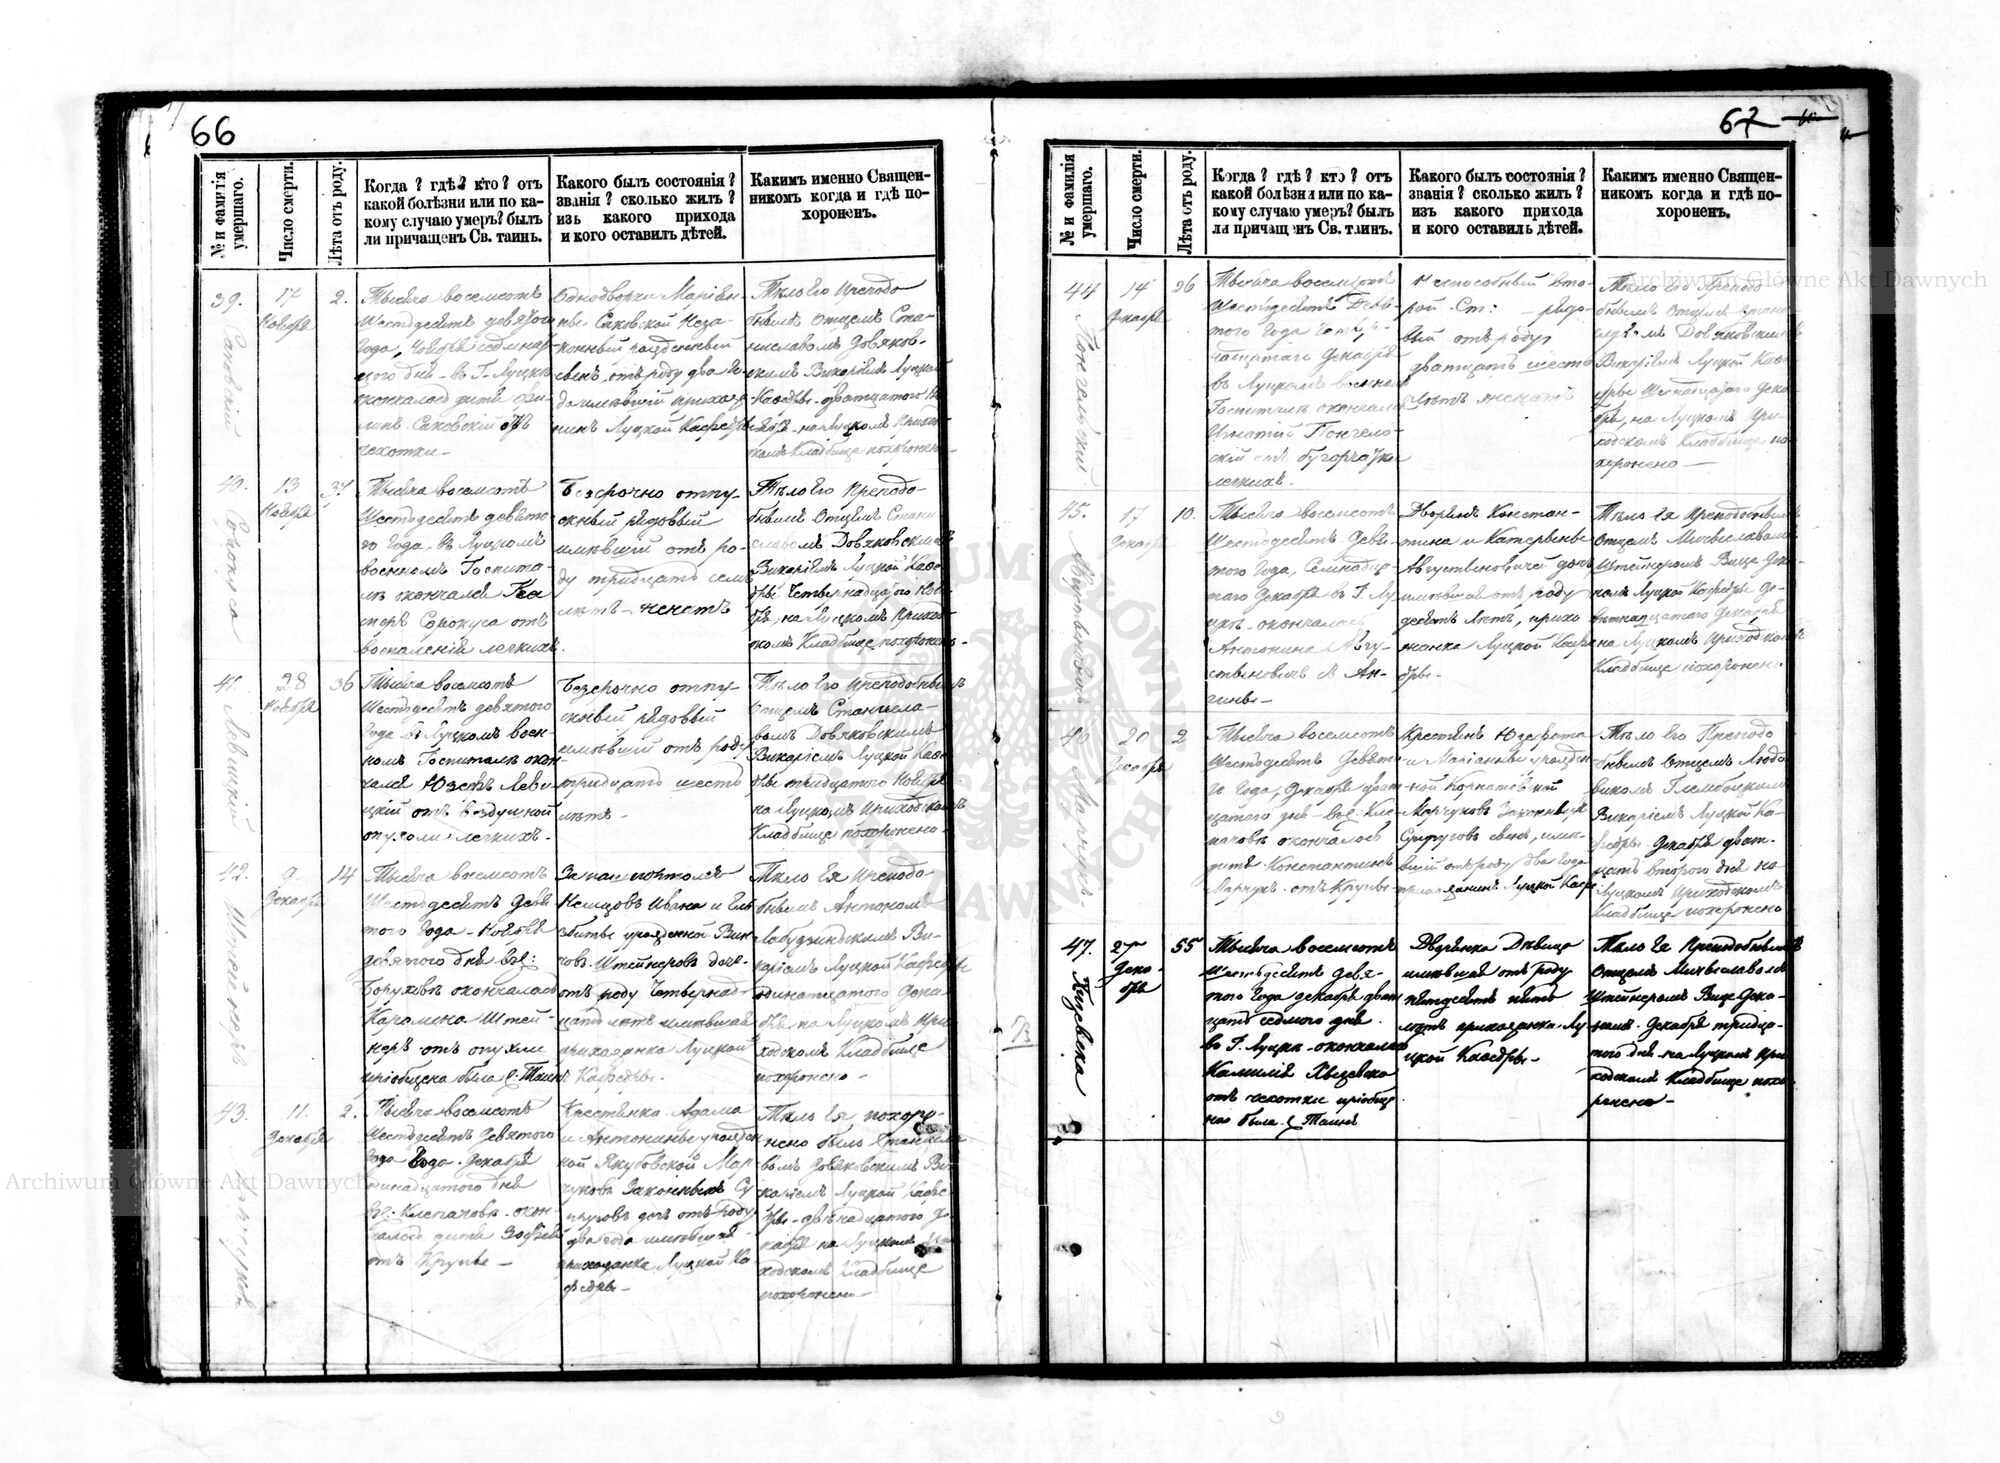 66
№ и фамилія умершаго.
Число смерти.
Лѣта отъ роду.
Когда? гдѣ? кто? отъ
какой болѣзни или по ка-
кому случаю умеръ? былъ
ли причащенъ Св. таинъ.
Какого былъ состоянія?
званія? сколько жилъ?
изъ какого прихода
и кого оставилъ дѣтей.
Какимъ именно Священ-
никомъ когда и гдѣ по-
хороненъ.
39.
Саковскій
17
Ноября
2.
Тысяча восемсотъ
Шестдесятъ девятого
Года, Ноября седмнад-
цатого дня в Г. Луцкѣ
скончалось дитя
Саковскій отъ
чахотки
Однодворки Маріан-
ны Саковской Неза-
конный рожденный
сынъ, отъ роду два го-
да имѣвшій прихожа-
нинъ Луцкой Кафедры
Тѣло Его Преподо
бнымъ Отцемъ Ста-
ниславомъ Довяков-
скимъ Викаріемъ Луцкой
Кафедры двадцатого Но-
ября на Луцкомъ Приход-
скомъ Кладбище похоронено
40.
Сорокуса
13
Ноября
37
Тысяча восемсотъ
Шестдесятъ девято-
го Года в Луцкомъ
военномъ Госпита-
лѣ скончался Кас
перъ Сорокуса отъ
воспаленій легкихъ.
Безсрочно отпу-
скный рядовый
имѣвшій отъ ро-
ду тридцать семь
лѣтъ - женатъ
Тѣло Его Преподо-
бнымъ Отцемъ Стани
славомъ Довяковскимъ
Викаріемъ Луцкой Кафе-
дры Четвернадцатого Ноя-
бря, на Луцкомъ Приход-
скомъ Кладбище похоронено
41.
Левицкій
28
Ноября
36
Тысяча восемсотъ
Шестдесятъ девятого
Года в Луцкомъ воен-
номъ Госпиталѣ скон-
чался Юзефъ Леви
цкій отъ воздушной
опухоли легкихъ.
Безсрочно отпу-
скный рядовый
имѣвшій отъ роду
тридцать шесть
лѣтъ
Тѣло Его Преподобнымъ
Отцемъ Станисла-
вомъ Довяковскимъ
Викаріемъ Луцкой Кафе-
дры тридцатого Ноября
на Луцкомъ Приходскомъ
Кладбище похоронено
42.
Штейнеръ
9
Декабря
14
Тысяча восемсотъ
Шестдесятъ Девя
того Года - Ноября
девятого дня
Боруховѣ скончалась
Каролина Штей-
неръ отъ опухли
пріобщена была С: Таинъ
За паспортомъ
Немцовъ Ивана и Ели
збиты урожденной
Штейнеровъ дочь
отъ роду Четвернад-
цать лѣтъ имѣвшая
прихожанка Луцкой
Кафедры
Тѣло Ея Преподо-
бнымъ Антономъ
Ви-
каріемъ Луцкой Кафедры
одинатцатого Дека-
бря на Луцкомъ При
ходскомъ Кладбище
похоронено
43.
11.
Декабря
2.
Тысяча восемсотъ
Шестдесятъ Девятого
Года Декабря
Клепачовъ скон-
чалось дитя Зофія
отъ Крупы
Крестьянка Адама
и Антонины урожден
ной Якубовской Мар-
чуковъ Законныхъ Су
пруговъ дочь отъ роду
два года имѣвшая
прихожанка Луцкой Ка
федры
Тѣло Ея похоро-
нено было Станисла
вомъ Довяковскимъ Ви-
каріемъ Луцкой Кафе-
дры двѣнадцатого Де
кабря на Луцкомъ При
ходскомъ Кладбище
похоронено
67
№ и фамилія умершаго.
Число смерти.
Лѣта отъ роду.
Когда? гдѣ? кто? отъ
какой болѣзни или по ка-
кому случаю умеръ? былъ
ли причащенъ Св. таинъ.
Какого былъ состоянія?
званія? сколько жилъ?
изъ какого прихода
и кого оставилъ дѣтей.
Какимъ именно Священ-
никомъ когда и гдѣ по-
хороненъ.
44
14
Декабря
26
Тысяча восемсотъ
Шестдесятъ Девя-
того Года Четвер-
надцатого Декабря
в Луцкомъ военномъ
Госпиталѣ скончался
Игнатій
отъ бугорчатки
легкихъ
Неспособный вто-
рой Ст: рядо-
вый отъ роду
двадцать шесть
лѣтъ женатъ
Тѣло его Преподо
бнымъ Отцемъ Стани
славомъ Довяковскимъ
Викаріемъ Луцкой Каф
едры Шестнадцатого Дека-
бря, на Луцкомъ При-
ходскомъ Кладбище по-
хоронено
45.
Августиновичъ
17
Декабря
10.
Тысяча восемсотъ
Шестдесятъ Девя-
того Года, Семнадца-
таго Декабря в Г. Лу
цкѣ скончалась
Антонина Авгу-
стиновичъ
Ан-
гины
Дворянъ Констан-
тина и Катерыны
Августиновичей дочь
имѣвшая отъ роду
десять лѣтъ, прихо
жанка Луцкой Кафе
дры
Тѣло Ея Преподобнымъ
Отцемъ Мичыславомъ
Штейнеромъ Вице Дека-
номъ Луцкой Кафедры де-
вятнадцатого Декабря
на Луцкомъ Приходскомъ
Кладбище похоронено
Марчукъ
20
Декабря
2
Тысяча восемсотъ
Шестдесятъ Девято
го Года, Декабря двад-
цатого дня - Кле-
пачовъ скончалось
дитя Константинъ
Марчукъ отъ Крупы
Крестьянъ Юзефата
и Маріанны урожден
ной
Марчуковъ Законныхъ
Супруговъ сынъ, имѣ-
вшій отъ роду два Года
прихожанинъ Луцкой Кафе
Тѣло Его Преподо
бнымъ Отцемъ Людо
викомъ
Викаріемъ Луцкой Ка-
федры Декабря двад-
цать второго дня на
Луцкомъ Приходскомъ
Кладбище похоронено
47.
27
Дека-
бря
55
Тысяча восемсотъ
Шестьдесятъ девя-
того Года декабря двад
цать седмого дня
в Г. Луцкѣ скончалась
Камилія
отъ чахотки пріобще
на была С Таинъ
Дворянка Дѣвица
имѣвшая отъ роду
пятдесятъ пять
лѣтъ прихожанка Лу
цкой Кафедры
Тѣло Ея Преподобнымъ
Отцемъ Мичыславомъ
Штейнеромъ Вице Дека-
номъ Декабря тридца-
того дня на Луцкомъ При
ходскомъ Кладбище похо
ронено
Archiwum Główne Akt Dawnych
Archiwum Główne Akt Dawnych